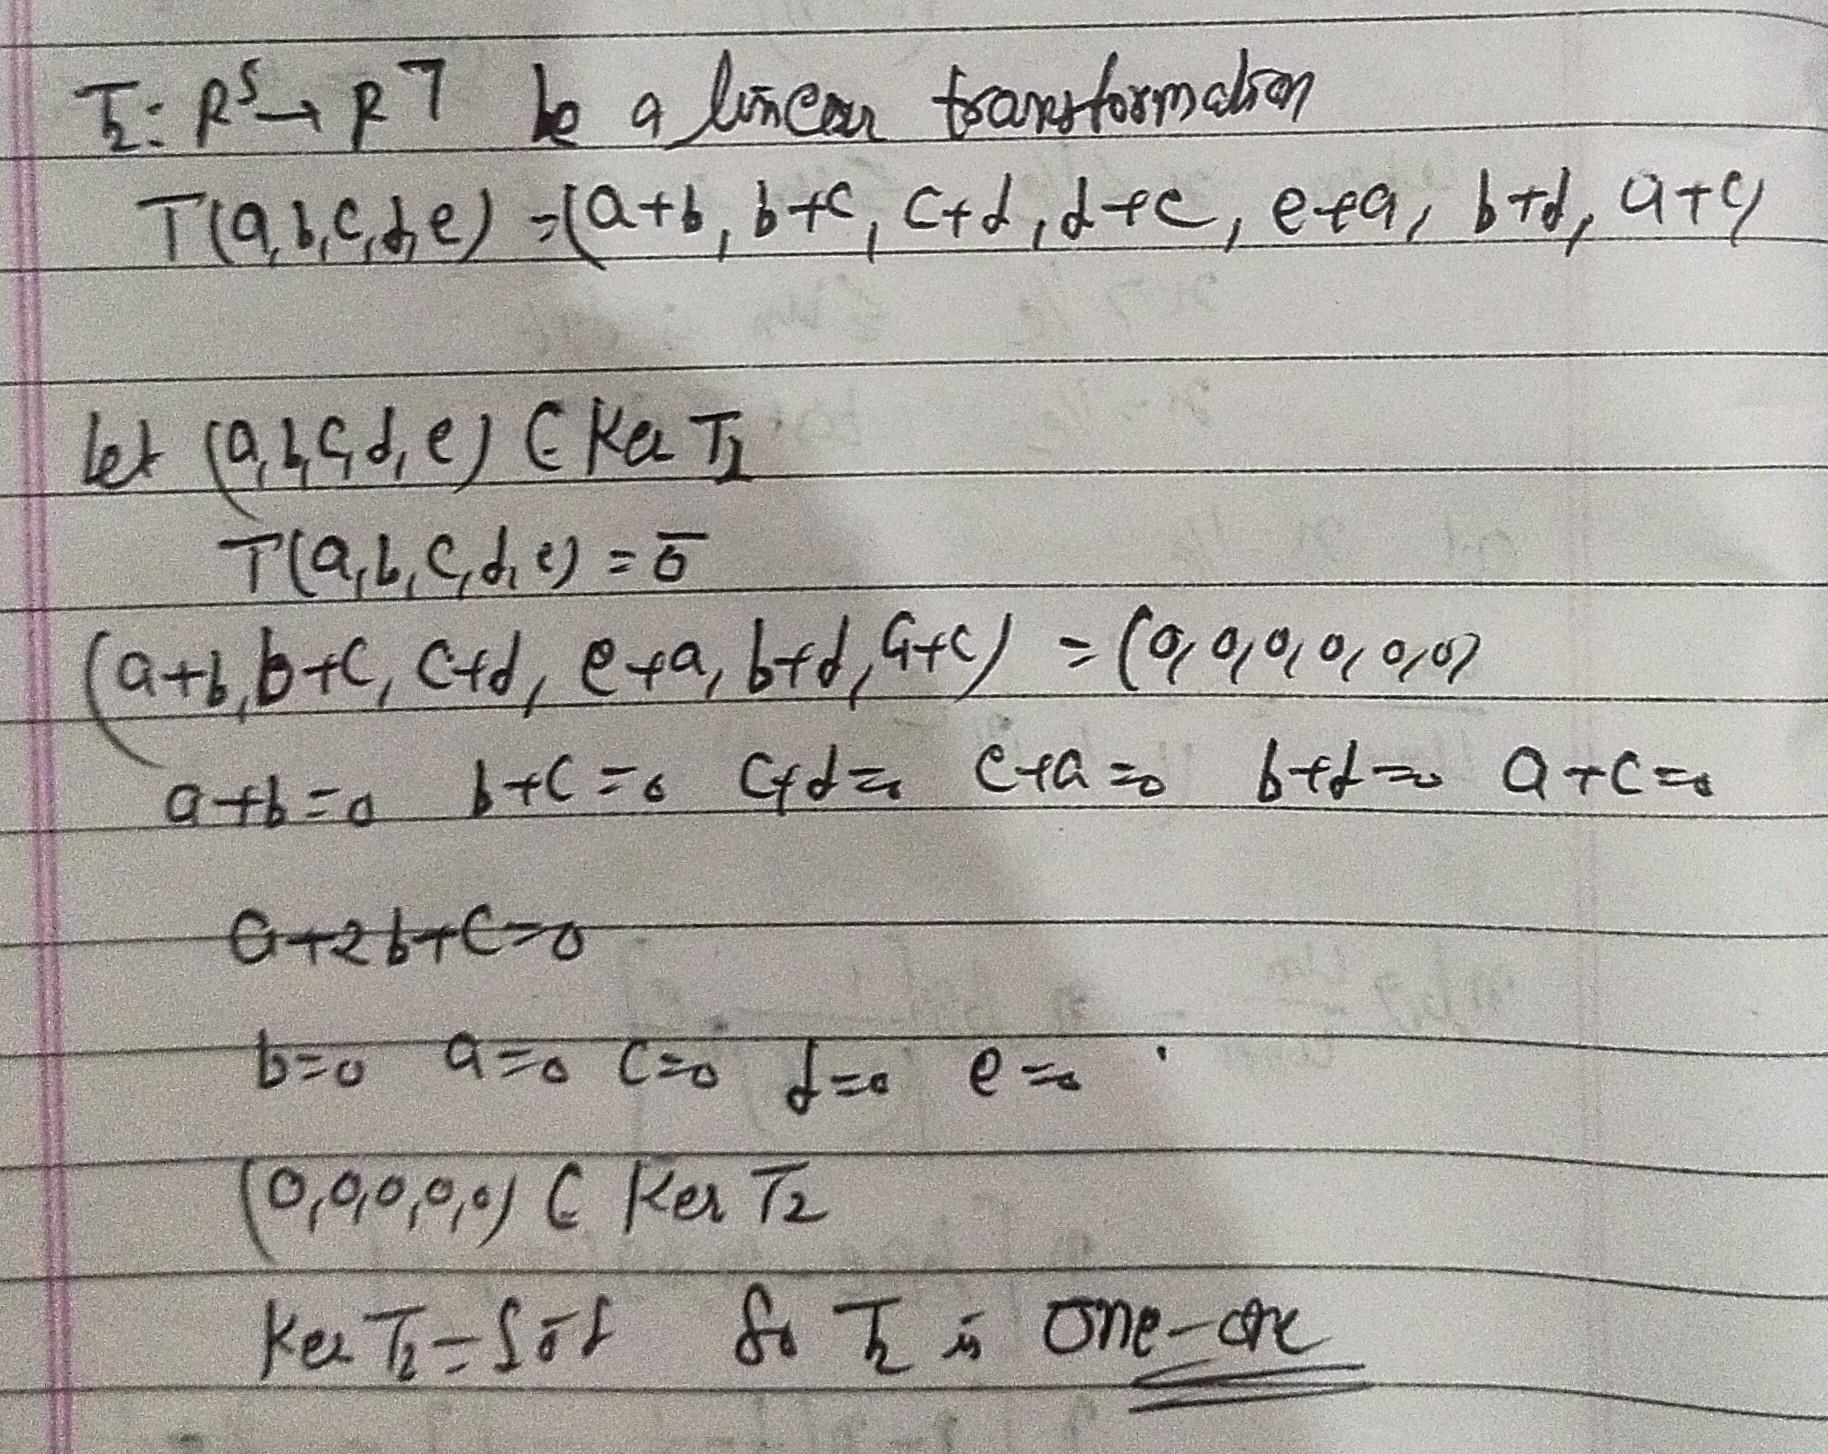 T₂: R⁵→R⁷ be a linear transformation
T(a,b,c,d,e) =(a+b, b+c, c+d, d+e, e+a, b+d, a+c)
let (a,b,c,d,e) ∈ Ker T₂
T(a,b,c,d,e) = 0̄
(a+b, b+c, c+d, e+a, b+d, a+c) = (0,0,0,0,0,0)
a+b=0 b+c=0 c+d=0 e+a=0 b+d=0 a+c=0
a+2b+c=0
b=0 a=0 c=0 d=0 e=0
(0,0,0,0,0) ∈ Ker T₂
Ker T₂={0̄} So T₂ is one-one